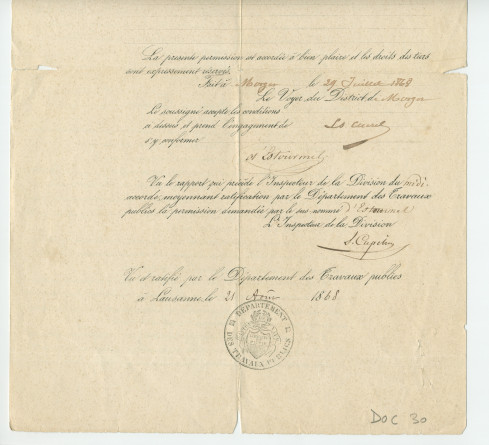 La presente permission est accordée à bien plaire et les droits des tiers
sont expressément réservés.
Fait à Morges le 29 Juillet 1868
Le Voyer du District de Morges
Le soussigné accepte les conditions
ci dessus et prend l'engagement de
s'y conformer
d'Estournel
Vu le rapport qui précède l'Inspecteur de la Division du midi
accorde, moyennant ratification par le Département des Travaux
publics la permission demandée par le sus-nommé d'Estournel
L'Inspecteur de la Division
Vu et ratifié par le Département des Travaux publics
à Lausanne, le 21 Août 1868
DÉPARTEMENT
DES TRAVAUX PUBLICS
DOC 30